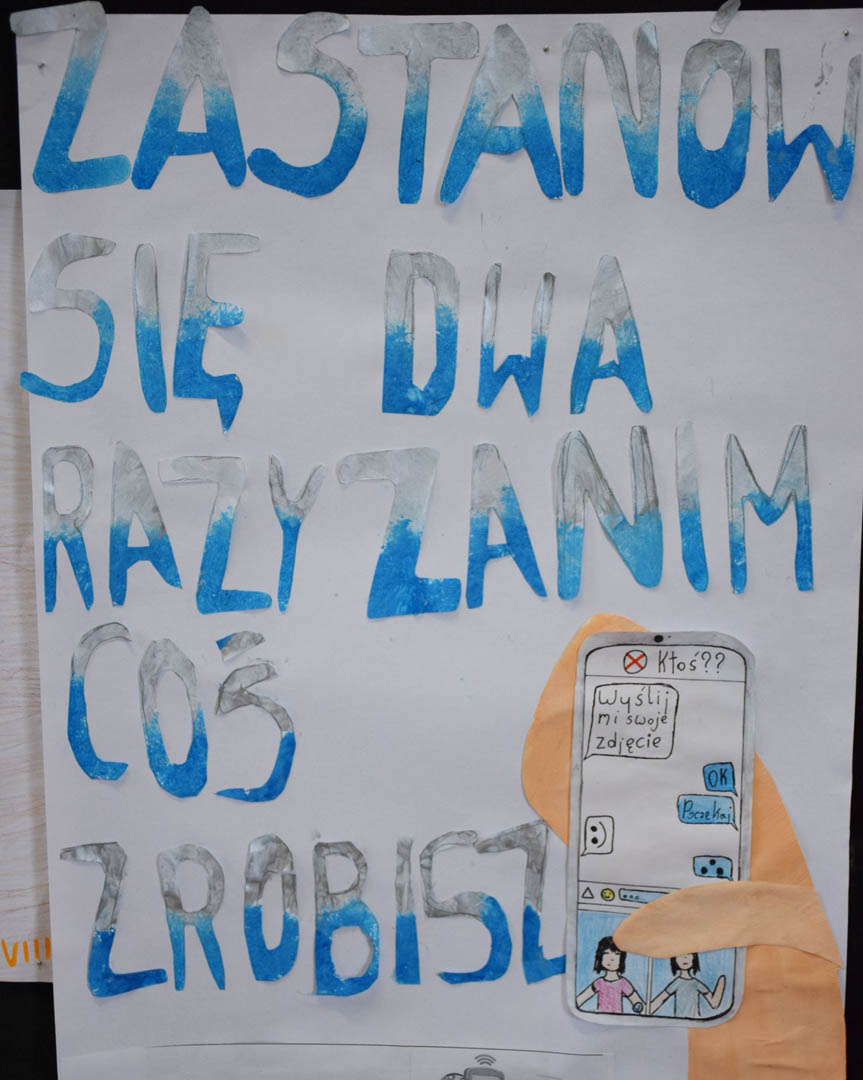 ZASTANÓW
SIĘ DWA
RAZY ZANIM
COŚ
ZROBISZ
Ktoś??
Wyślij
mi swoje
zdjęcie
OK
Poczekaj
VIII